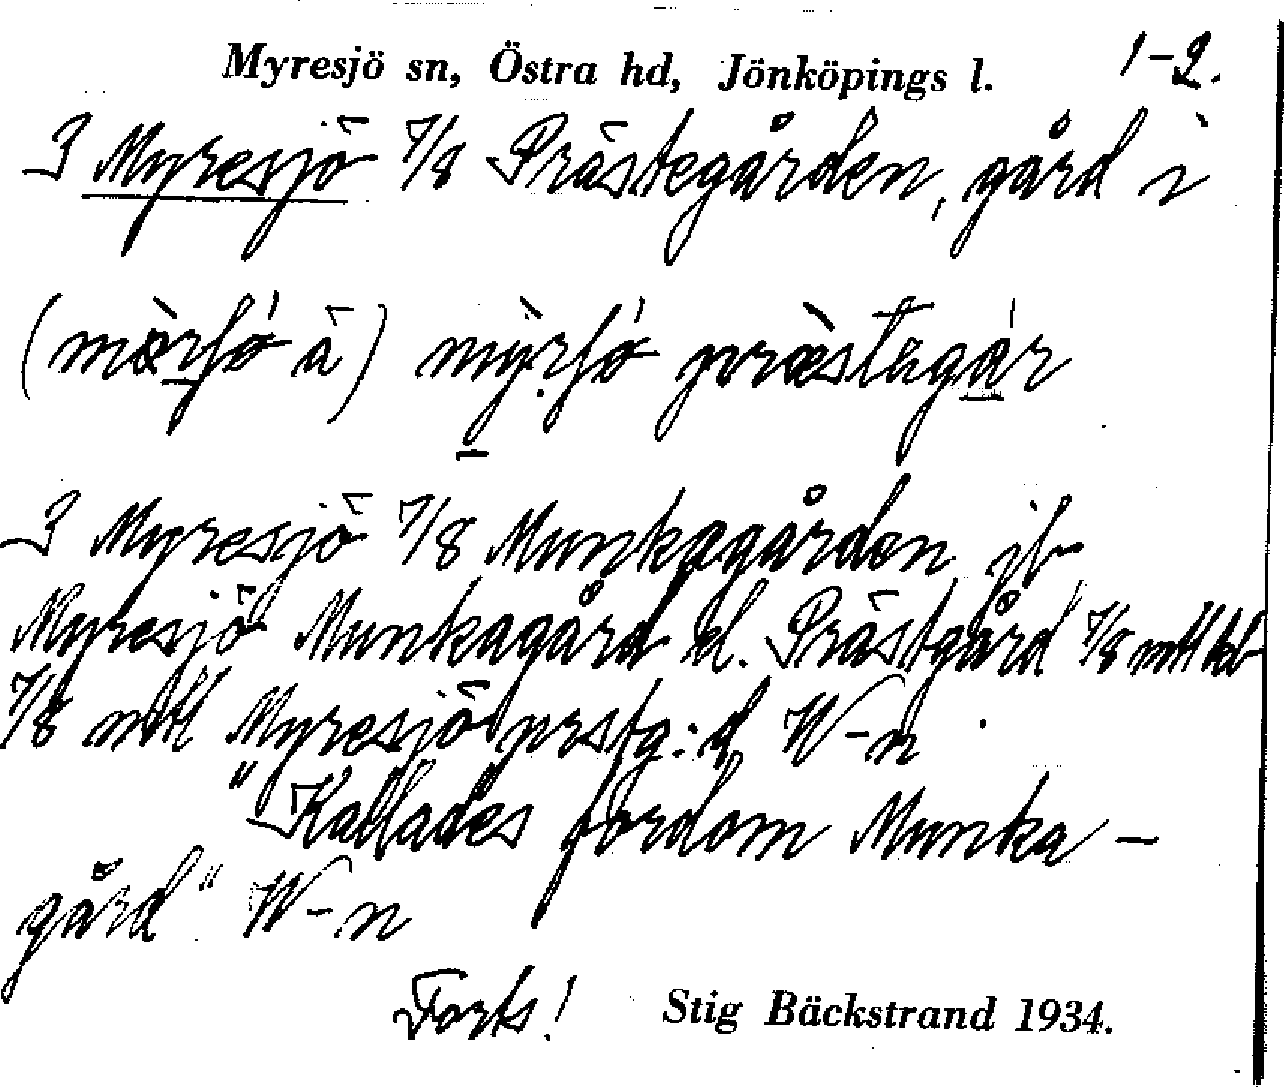 Myresjö sn, Östra hd, Jönköpings l. 1-2.
3 Myresjö 7/8 Prästegården, gård i
3 Myresjö 7/8 Munkagården jb
Myresjö Munkagård el. Prästgård 7/8 mtl kb
7/8 mtl Myresjö prstg:d W-n
"Kallades fordom Munka-
gård" W-n
Forts! Stig Bäckstrand 1934.